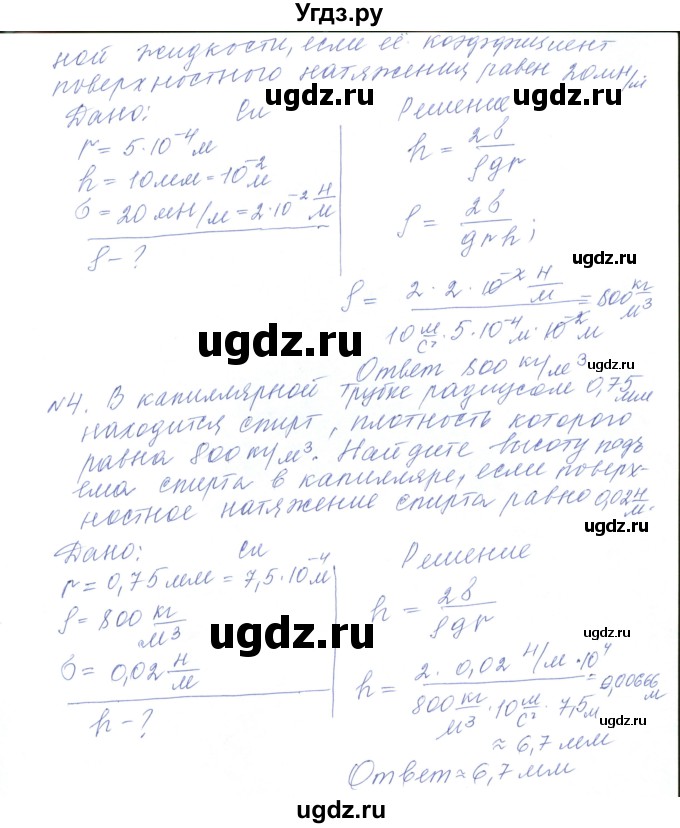 Угдз.ру
ной жидкости, если её коэффициент
поверхностного натяжения равен 20мН/м
Дано: Си Решение
r = 5·10⁻⁴ м
h = 10мм = 10⁻² м
σ = 20 мН/м = 2·10⁻² Н/м
ρ - ?
h = 2σ/ρgr
ρ = 2σ/grh;
ρ = 2·2·10⁻² Н/м / 10 м/с²·5·10⁻⁴м·10⁻²м = 800 кг/м³
Ответ 800 кг/м³
№4. В капиллярной трубке радиусом 0,75 мм
находится спирт, плотность которого
равна 800 кг/м³. Найдите высоту подъ
ема спирта в капилляре, если поверх-
ностное натяжение спирта равно 0,02 Н/м.
Дано: Си Решение
r = 0,75 мм = 7,5·10⁻⁴ м
ρ = 800 кг/м³
σ = 0,02 Н/м
h - ?
h = 2σ/ρgr
h = 2·0,02 Н/м·10⁴ / 800 кг/м³·10 м/с²·7,5м = 0,00666 м
≈ 6,7 мм
Ответ ≈ 6,7 мм
ugdz.ru
ugdz.ru
ugdz.ru
ugdz.ru
ugdz.ru
ugdz.ru
ugdz.ru
ugdz.ru
ugdz.ru
ugdz.ru
ugdz.ru